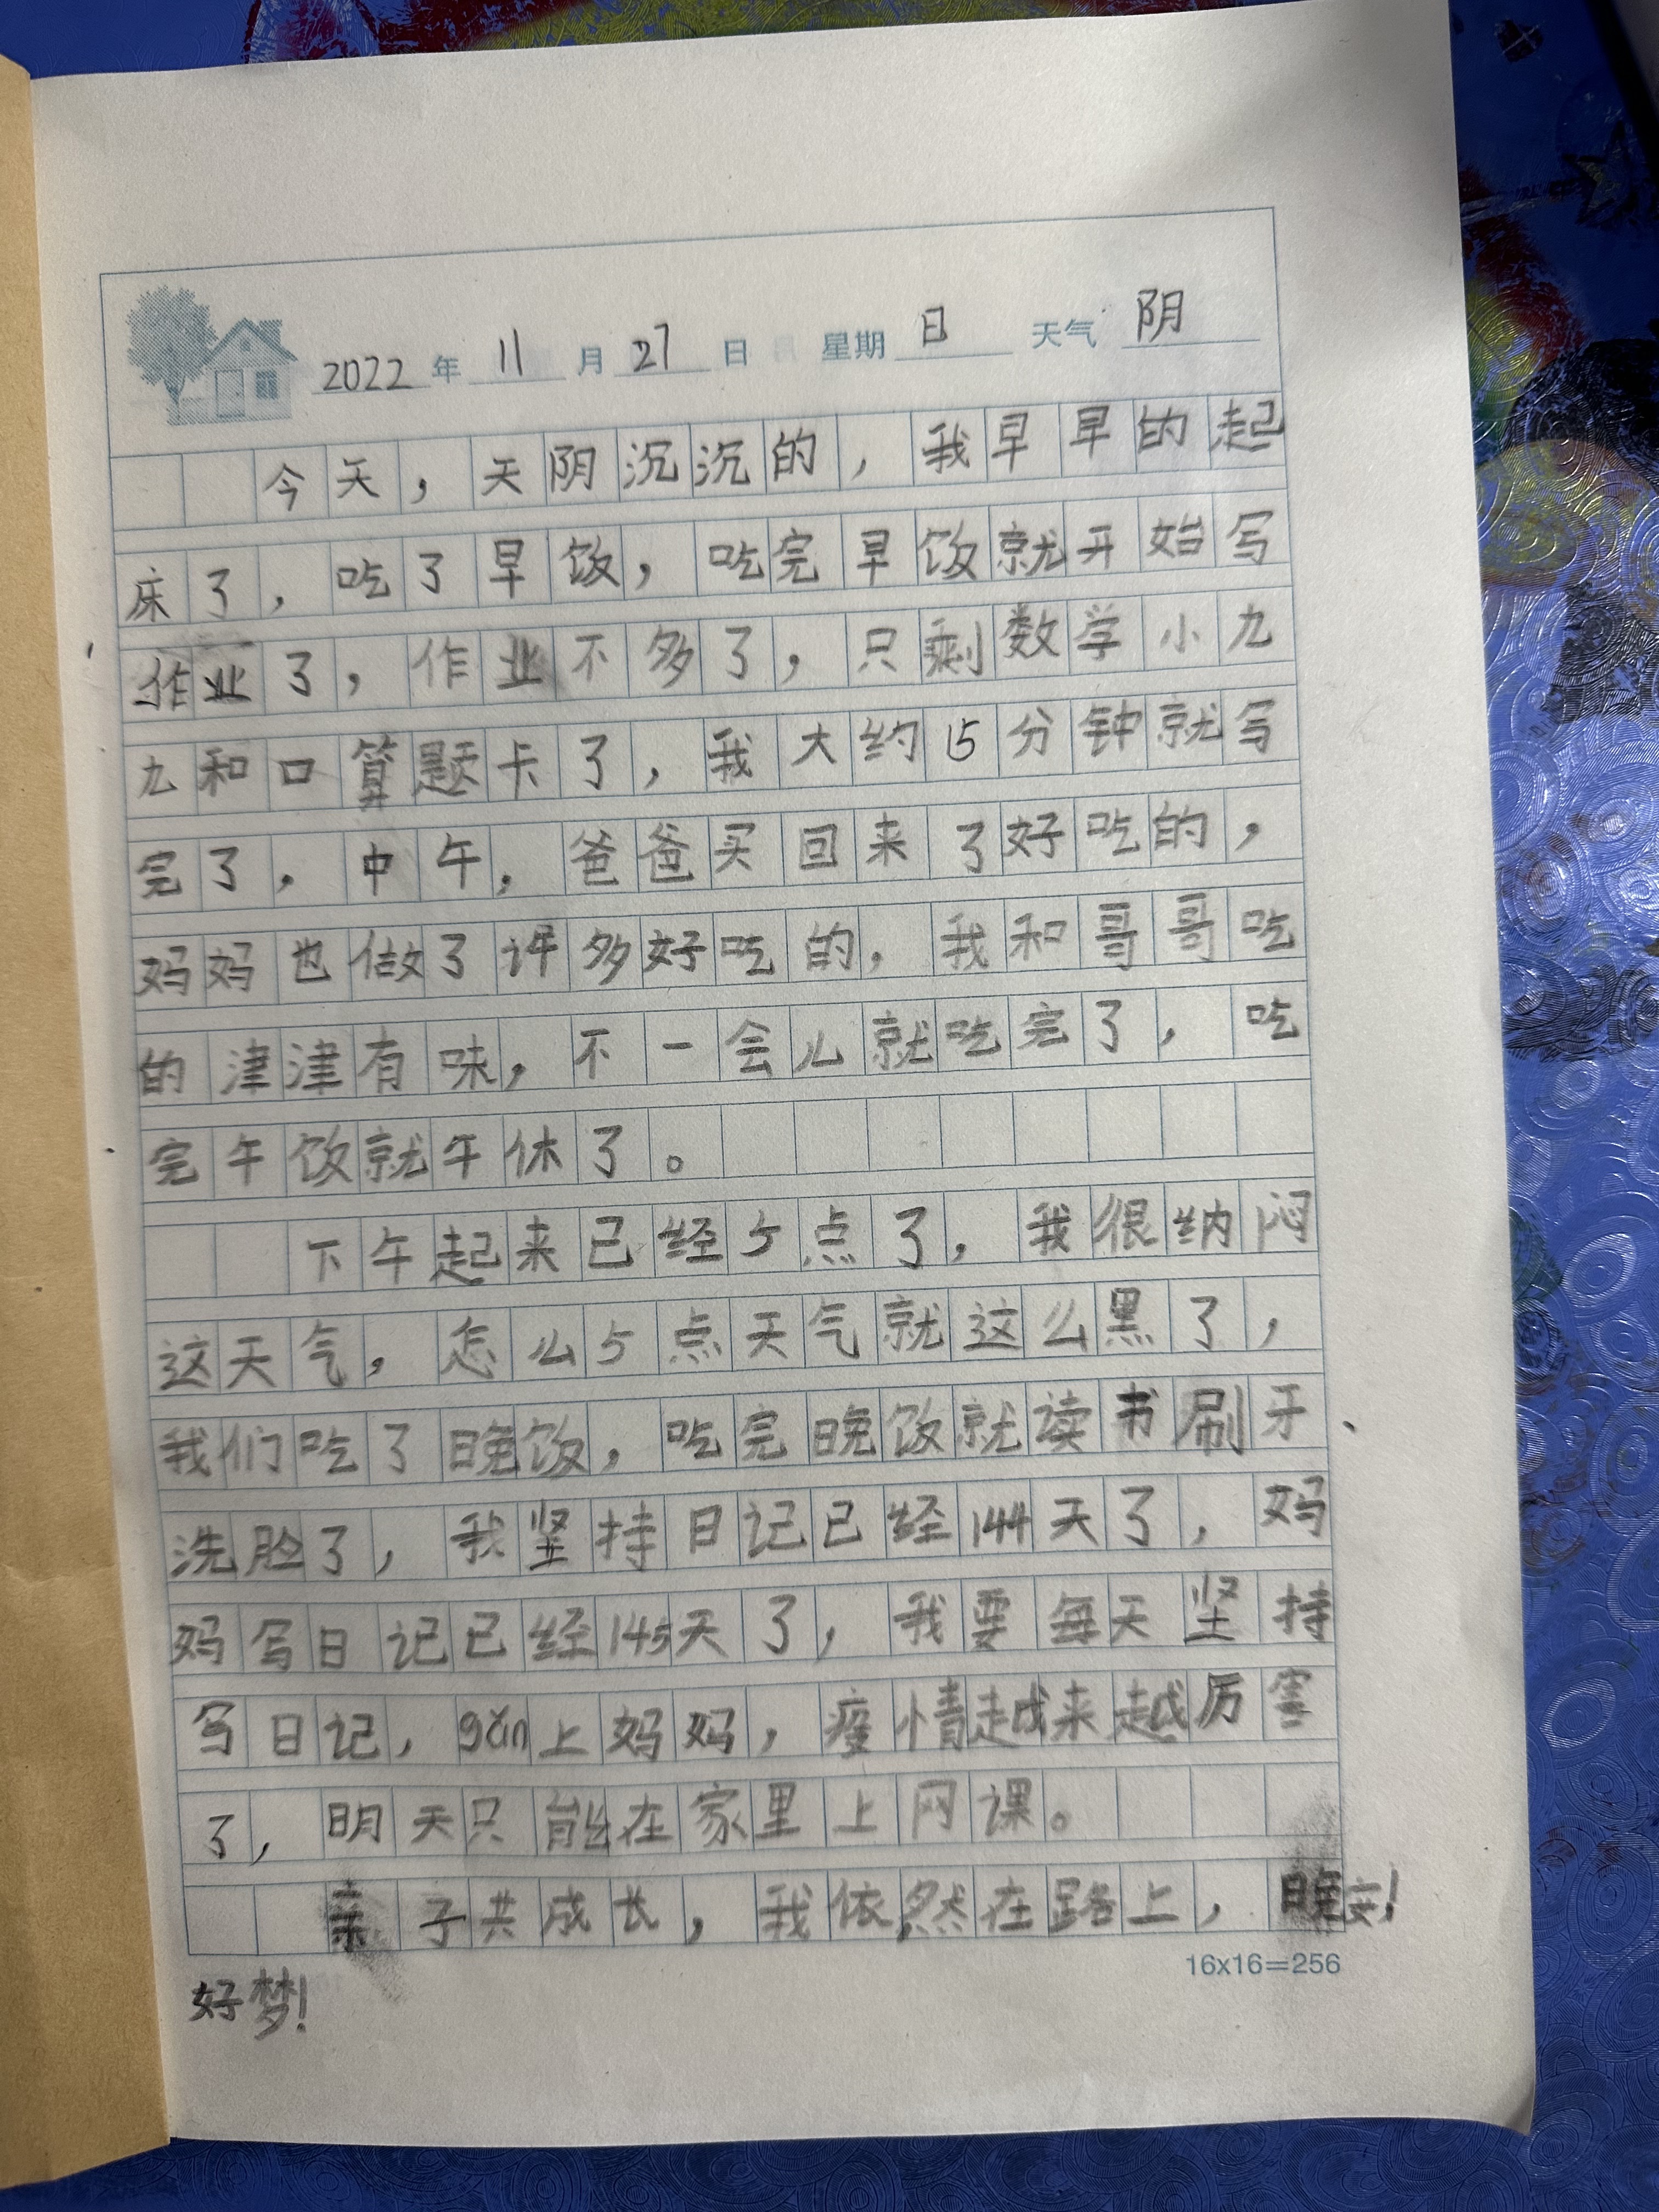 2022年 11月 27日 星期 日 天气 阴
今天，天阴沉沉的，我早早的起
床了，吃了早饭，吃完早饭就开始写
作业了，作业不多了，只剩数学小九
九和口算题卡了，我大约15分钟就写
完了，中午，爸爸买回来了好吃的，
妈妈也做了许多好吃的，我和哥哥吃
的津津有味，不一会儿就吃完了，吃
完午饭就午休了。
下午起来已经5点了，我很纳闷
这天气，怎么5点天气就这么黑了，
我们吃了晚饭，吃完晚饭就读书刷牙
洗脸了，我坚持日记已经144天了，妈
妈写日记已经145天了，我要每天坚持
写日记，gǎn上妈妈，疫情越来越厉害
了，明天只能在家里上网课。
亲子共成长，我依然在路上，晚安！
16x16=256
好梦！